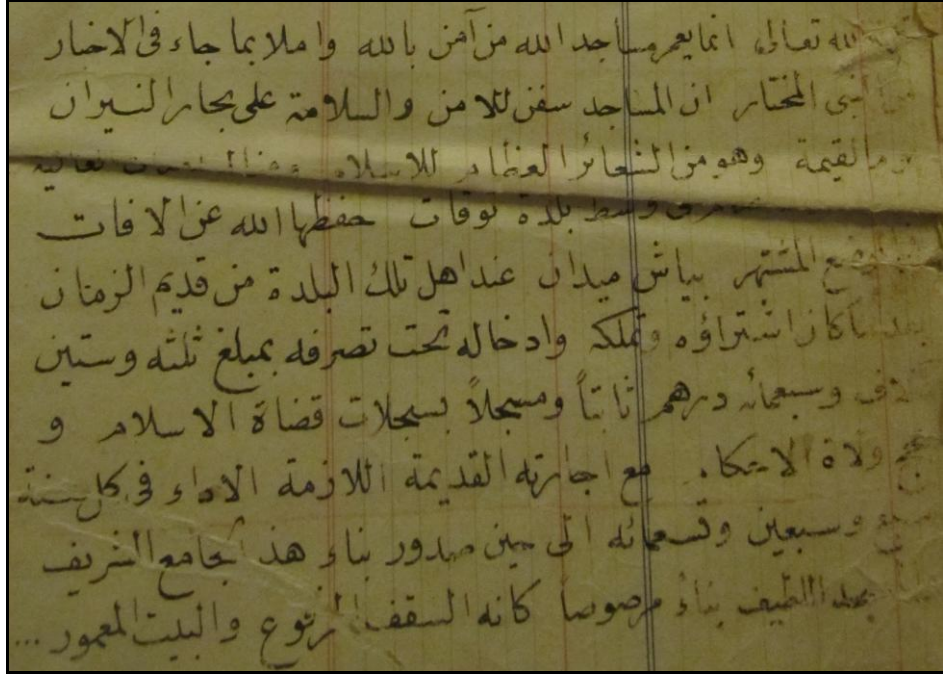 الله تعالى انما يعمر مساجد الله من آمن بالله واملا بما جاء فى الاخبار
النبى المختار ان المساجد سفن للامن والسلامة على بحار النيران
القيمة وهو من الشعائر العظام للاسلام
وسط بلدة توقات حفظها الله عن الافات
المشتهر بياش ميدان عند اهل تلك البلدة من قديم الزمان
ما كان اشتراؤه وتملكه وادخاله تحت تصرفه بمبلغ ثلثه وستين
وسبعمائه درهم ثابتاً ومسجلاً بسجلات قضاة الاسلام و
ولاة الاحكام مع اجارته القديمة اللازمة الاداء فى كل سنة
وسبعين وتسعمائه الى حين صدور بناء هذ الجامع الشريف
اللطيف بناء مرصوصا كانه السقف المرفوع والبيت المعمور ...